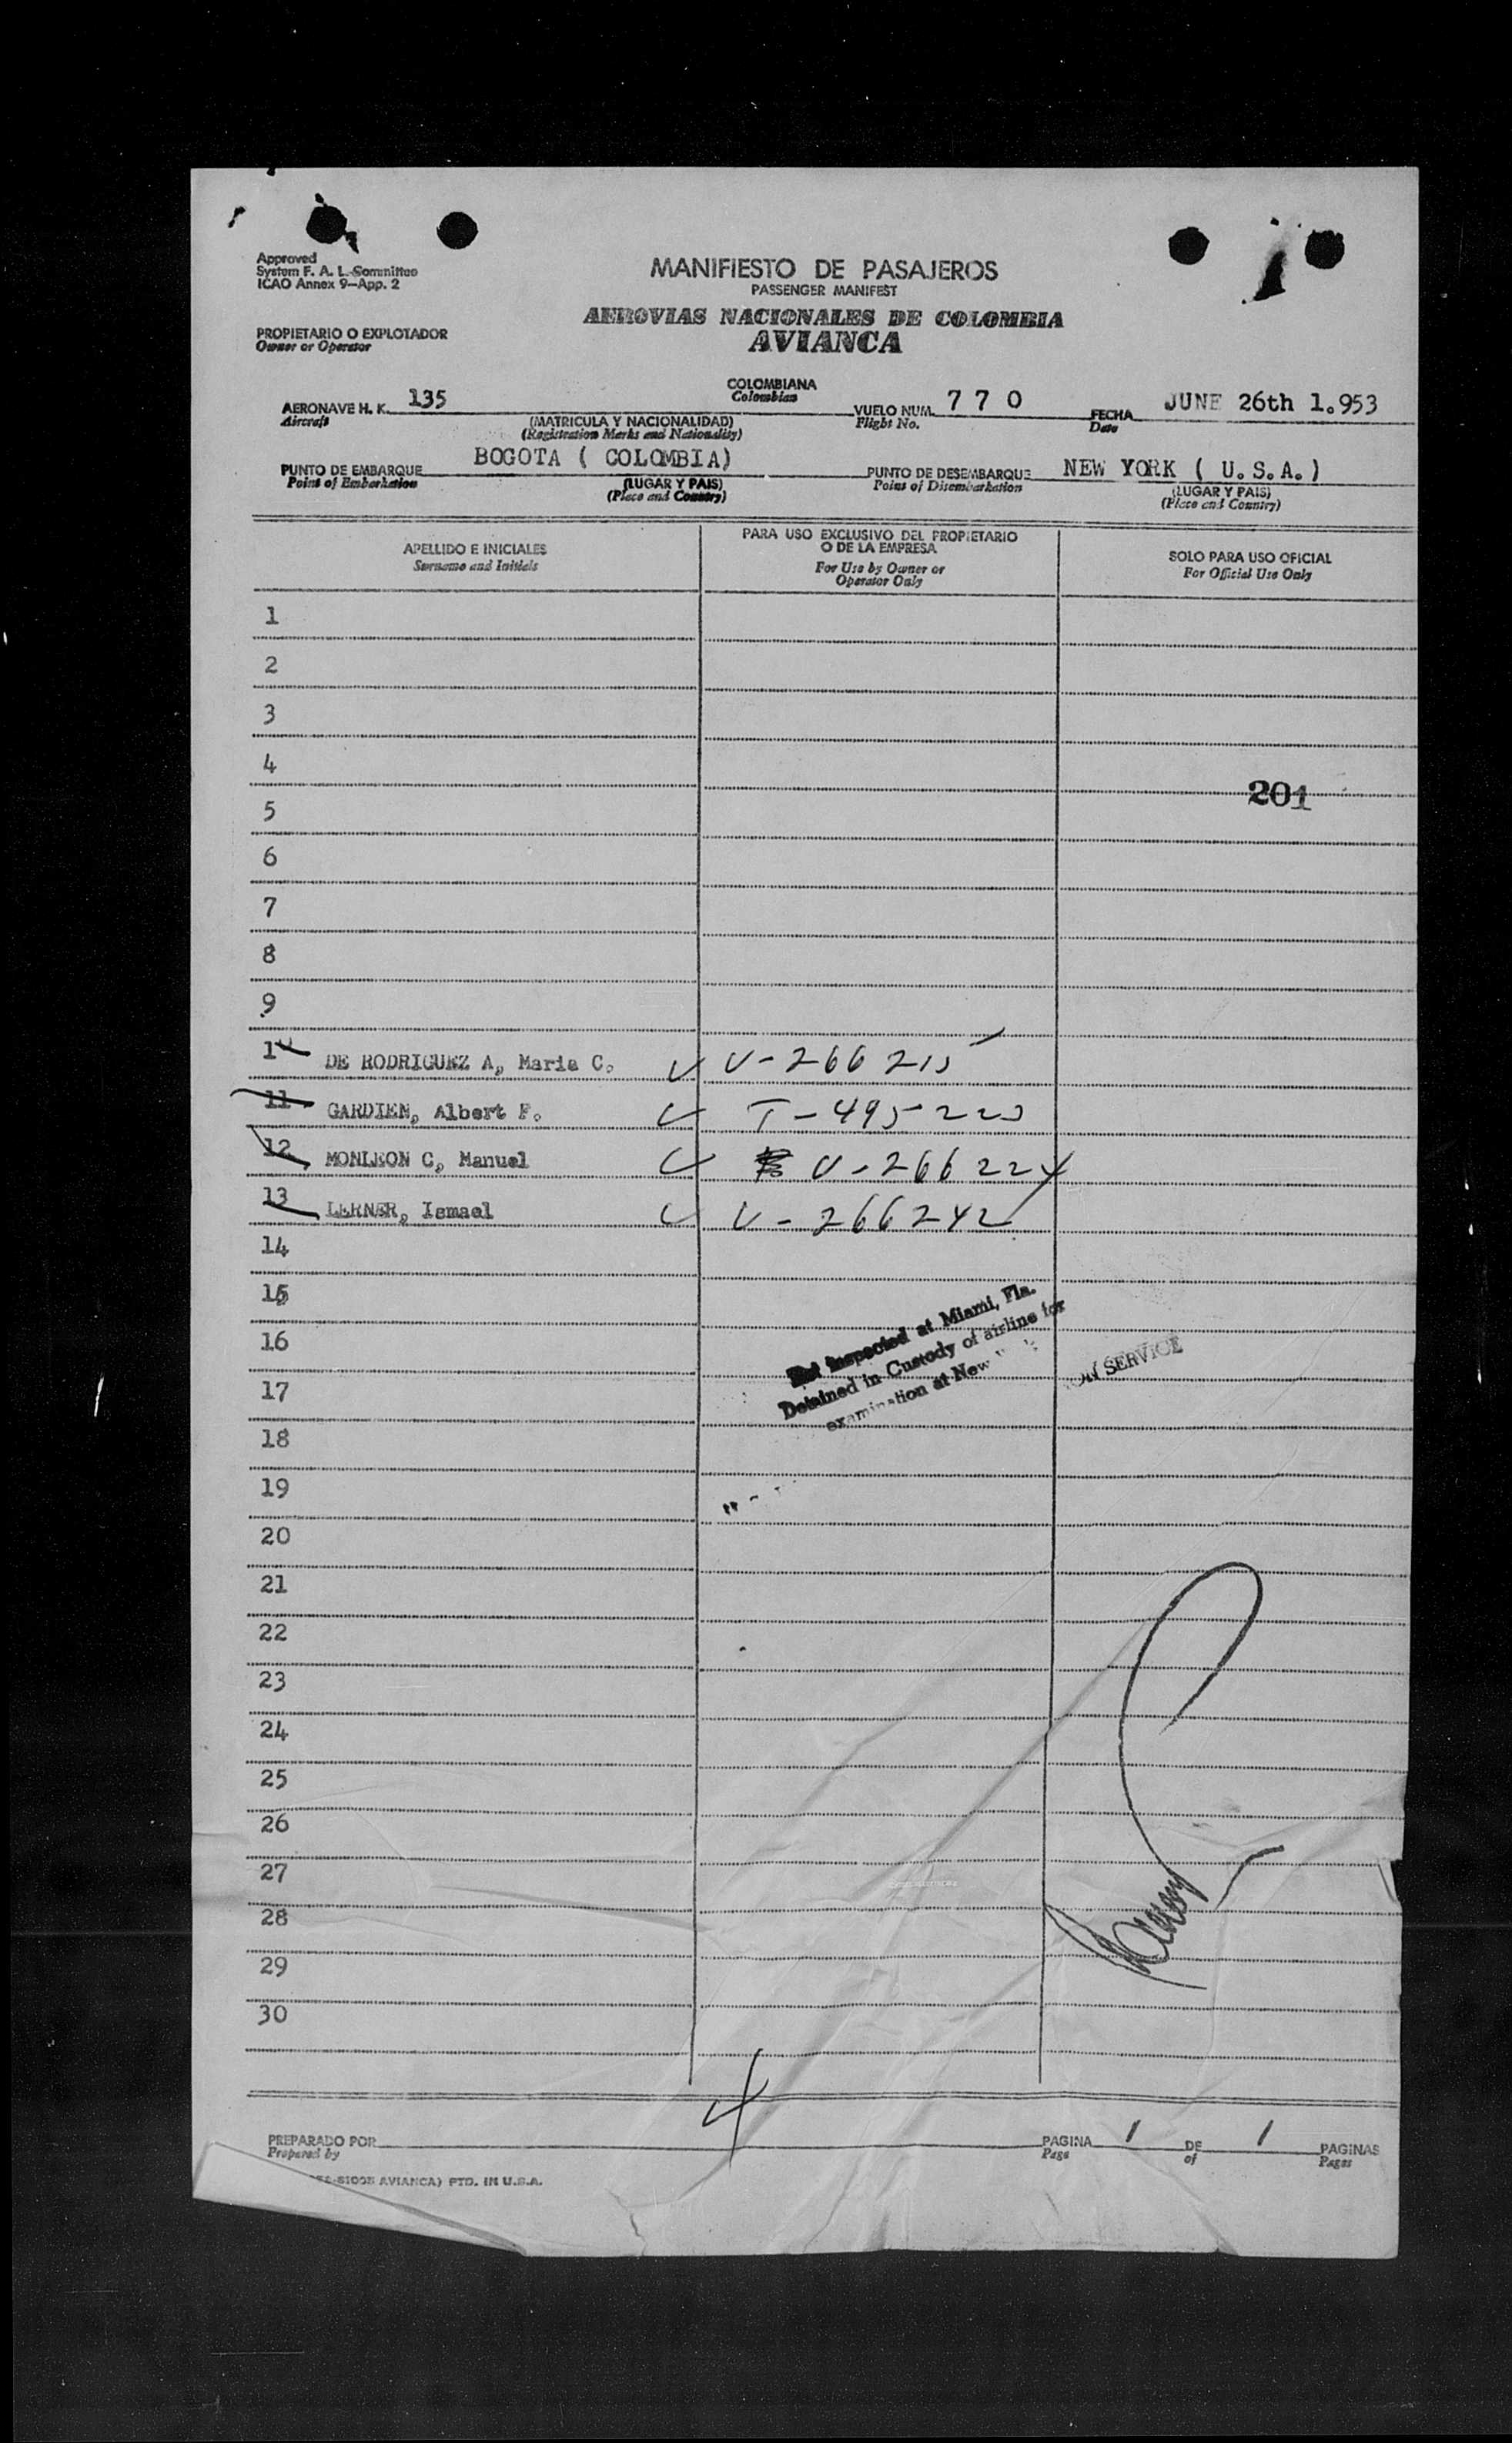 Approved
System F. A. L. Committee
ICAO Annex 9—App. 2
MANIFIESTO DE PASAJEROS
PASSENGER MANIFEST
AEROVIAS NACIONALES DE COLOMBIA
AVIANCA
PROPIETARIO O EXPLOTADOR
Owner or Operator
AERONAVE H. K. 135 COLOMBIANA VUELO NUM. 7 7 0 FECHA JUNE 26th 1.953
Aircraft Colombian Flight No. Date
(MATRICULA Y NACIONALIDAD)
(Registration Marks and Nationality)
PUNTO DE EMBARQUE BOGOTA ( COLOMBIA) PUNTO DE DESEMBARQUE NEW YORK ( U.S.A.)
Point of Embarkation (LUGAR Y PAIS) Point of Disembarkation (LUGAR Y PAIS)
(Place and Country) (Place and Country)
APELLIDO E INICIALES
Surname and Initials
PARA USO EXCLUSIVO DEL PROPIETARIO
O DE LA EMPRESA
For Use by Owner or
Operator Only
SOLO PARA USO OFICIAL
For Official Use Only
1
2
3
4
201
5
6
7
8
9
10 DE RODRIGUEZ A, Maria C. V-266215
11 GARDIEN, Albert F. T-495223
12 MONLEON C, Manuel V-266224
13 LERNER, Ismael V-266242
14
15
16
17
Not Inspected at Miami, Fla.
Detained in Custody of airline for
examination at New
SERVICE
18
19
20
21
22
23
24
25
26
27
28
29
30
4
PREPARADO POR PAGINA 1 DE 1 PAGINAS
Prepared by Page of Pages
AVIANCA) PTD. IN U.S.A.